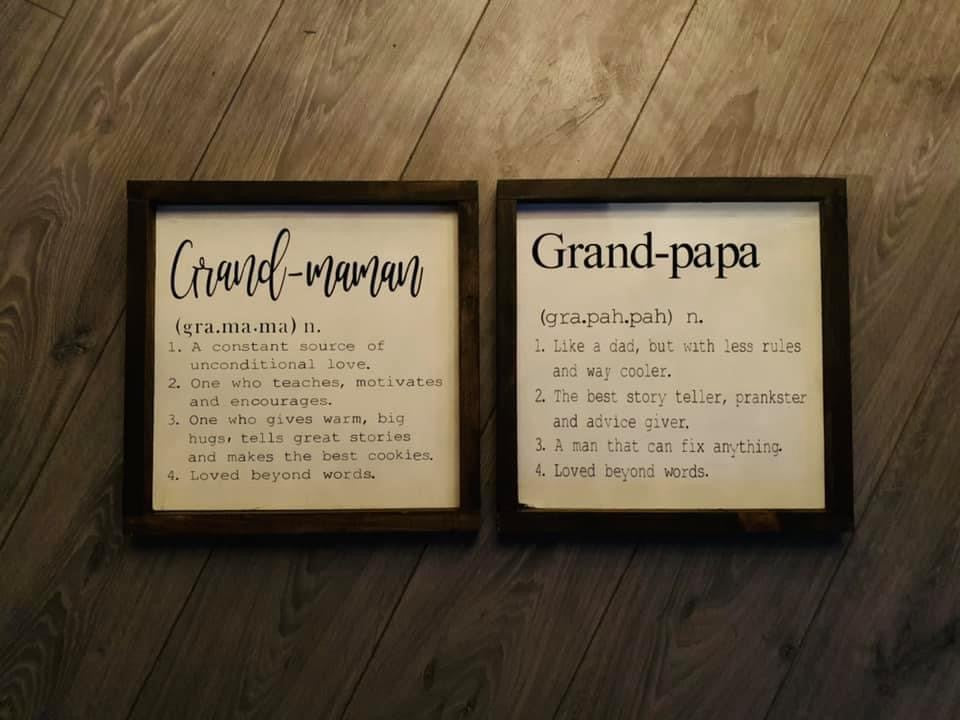 Grand-maman
(gra.ma.ma) n.
1. A constant source of
unconditional love.
2. One who teaches, motivates
and encourages.
3. One who gives warm, big
hugs, tells great stories
and makes the best cookies.
4. Loved beyond words.
Grand-papa
(gra.pah.pah) n.
1. Like a dad, but with less rules
and way cooler.
2. The best story teller, prankster
and advice giver.
3. A man that can fix anything.
4. Loved beyond words.